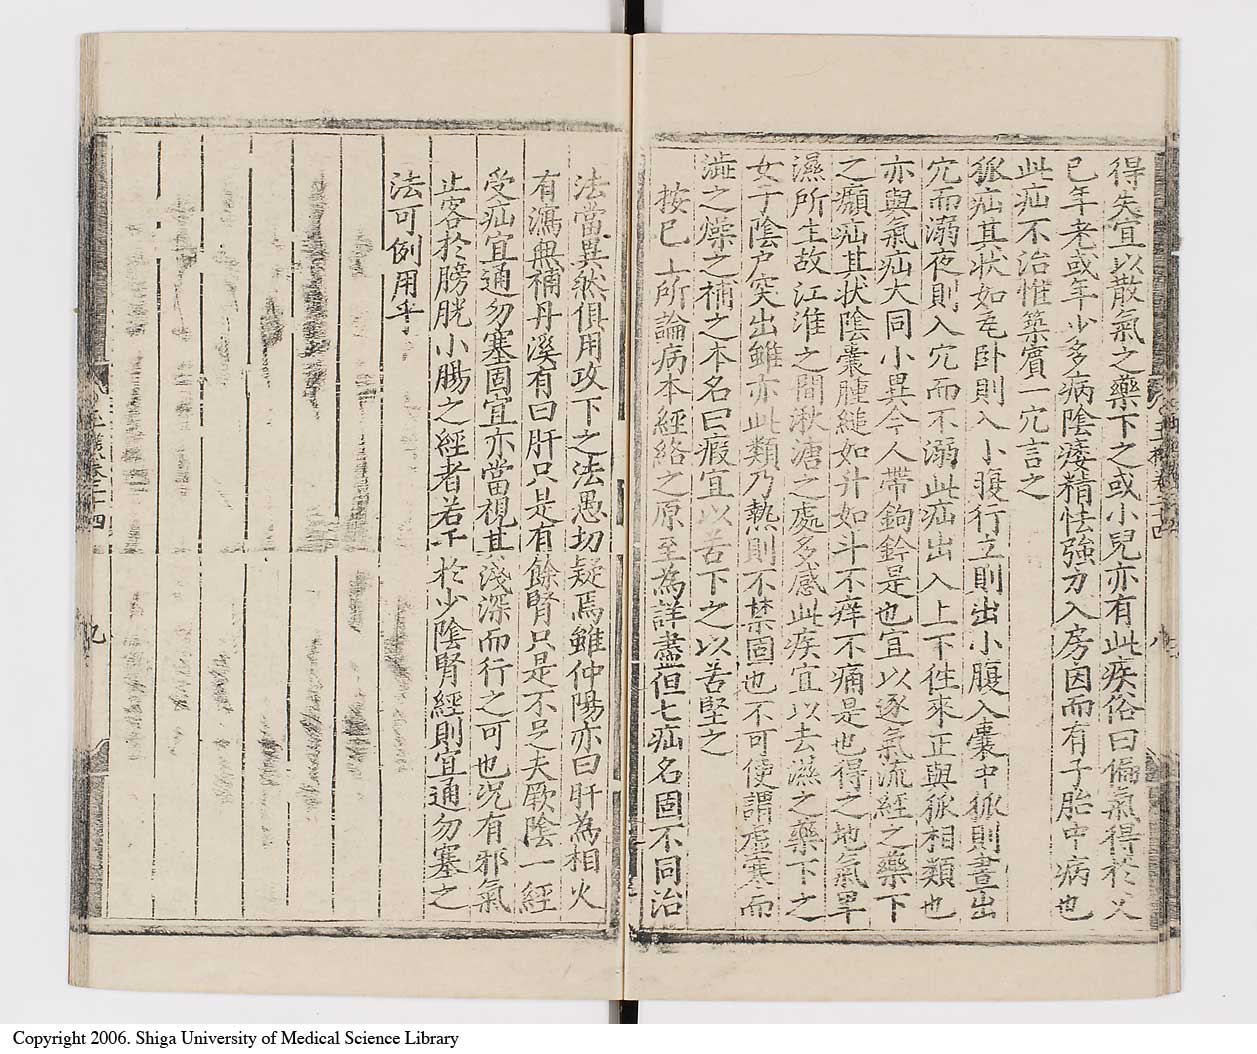 得失宜以散氣之藥下之或小兒亦有此疾俗曰偏氣得於父
已年老或年少多病陰痿精怯強力入房因而有子胎中病也
此疝不治惟築賓一穴言之
狐疝其狀如瓦卧則入小腹行立則出小腹入囊中狐則晝出
穴而溺夜則入穴而不溺此疝出入上下徃來正與狐相類也
亦與氣疝大同小異今人帶鉤鈐是也宜以逐氣流經之藥下
之㿗疝其狀陰囊腫縋如升如斗不痒不痛是也得之地氣卑
濕所生故江淮之間湫溏之處多感此疾宜以去濕之藥下之
女子陰户突出雖亦此類乃熱則不禁固也不可便謂虚寒而
澁之燥之補之本名曰瘕宜以苦下之以苦堅之
按已上所論病本經絡之原至為詳盡但七疝名固不同治
法當異然俱用攻下之法愚切疑焉雖仲陽亦曰肝為相火
有瀉無補丹溪有曰肝只是有餘腎只是不足夫厥陰一經
受疝宜通勿塞固宜亦當視其淺深而行之可也况有邪氣
止客於膀胱小腸之經者若干於少陰腎經則宜通勿塞之
法可例用乎
八
九